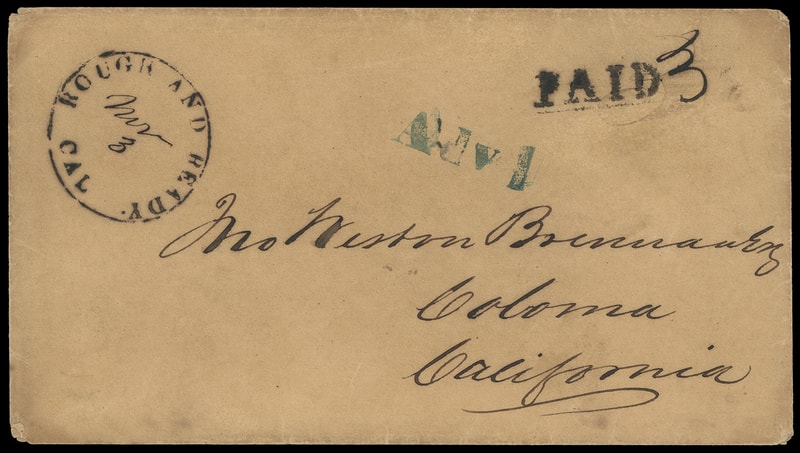 ROUGH AND READY. CAL
3
PAID 3
Jno Weston Brennan Esq
Coloma
California